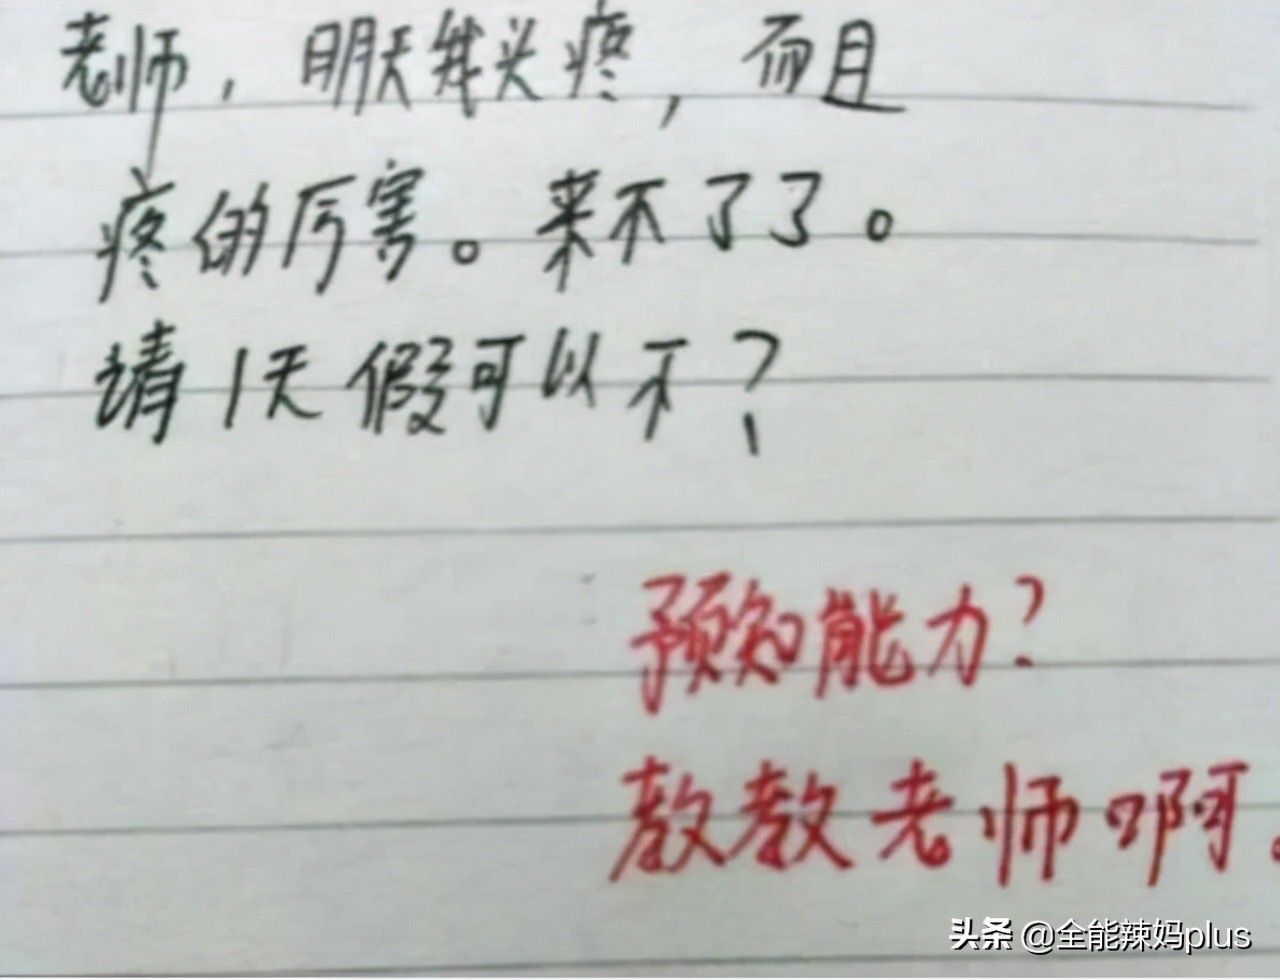 老师，明天我头疼，而且
疼的厉害。来不了了。
请1天假可以不？
预知能力？
教教老师啊。
头条 @全能辣妈plus